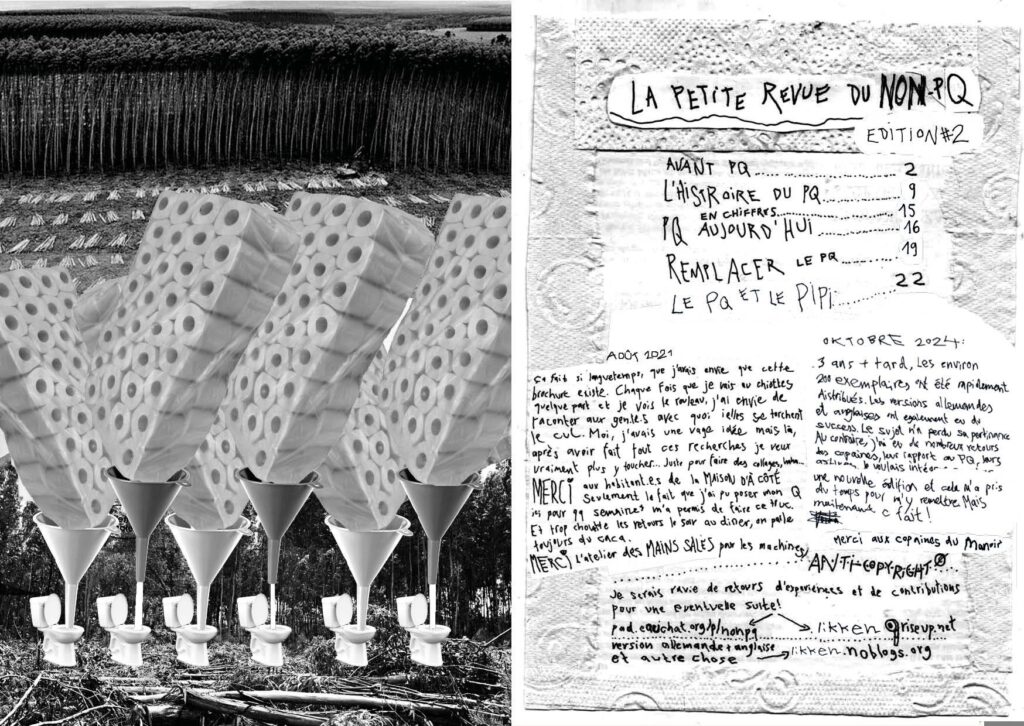 LA PETITE REVUE DU NON-PQ
EDITION #2
AVANT PQ .......... 2
L'HISTROIRE DU PQ .......... 9
EN CHIFFRES .......... 15
PQ AUJOURD'HUI .......... 16
REMPLACER LE PQ .......... 19
LE PQ ET LE PIPI .......... 22
AOÛT 2021
ça fait si languetemps que j'avais envie que cette
brochure existe. Chaque fois que je vais au chiottes
quelque part et je vois le rouleau, j'ai envie de
raconter aux gen.te.s avec quoi ielles se torchent
le cul. Moi, j'avais une vage idée mais là,
après avoir fait tout ces recherches je veux
vraiment plus y toucher... Juste pour faire des collages,
MERCI aux habitant.es de la MAISON D'À CÔTÉ
Seulement le fait que j'ai pu poser mon Q
ici pour 99 semaines m'a permis de faire ce truc.
Et trop chouette les retours le soir au diner, on parle
toujours du caca.
MERCI L'atelier des MAINS SALES pour les machines
OKTOBRE 2024:
3 ans + tard, Les environ
200 exemplaires ont été rapidement
distribués. Les versions allemandes
et anglaises ont egalement eu du
success. Le sujet n'a perdu sa pertinance
Au contraire, j'ai eu de nombreux retours
des copaines, leur rapport au PQ, leurs
je voulais
une nouvelle édition et cela m'a pris
du temps pour m'y remettre. Mais
maintenant c fait!
merci aux copaines du Manoir
ANTI-COPYRIGHT
Je serais ravie de retours d'experiences et de contributions
pour une eventuelle suite!
likken@riseup.net
version allemande + anglaise
et autre chose likken.noblogs.org